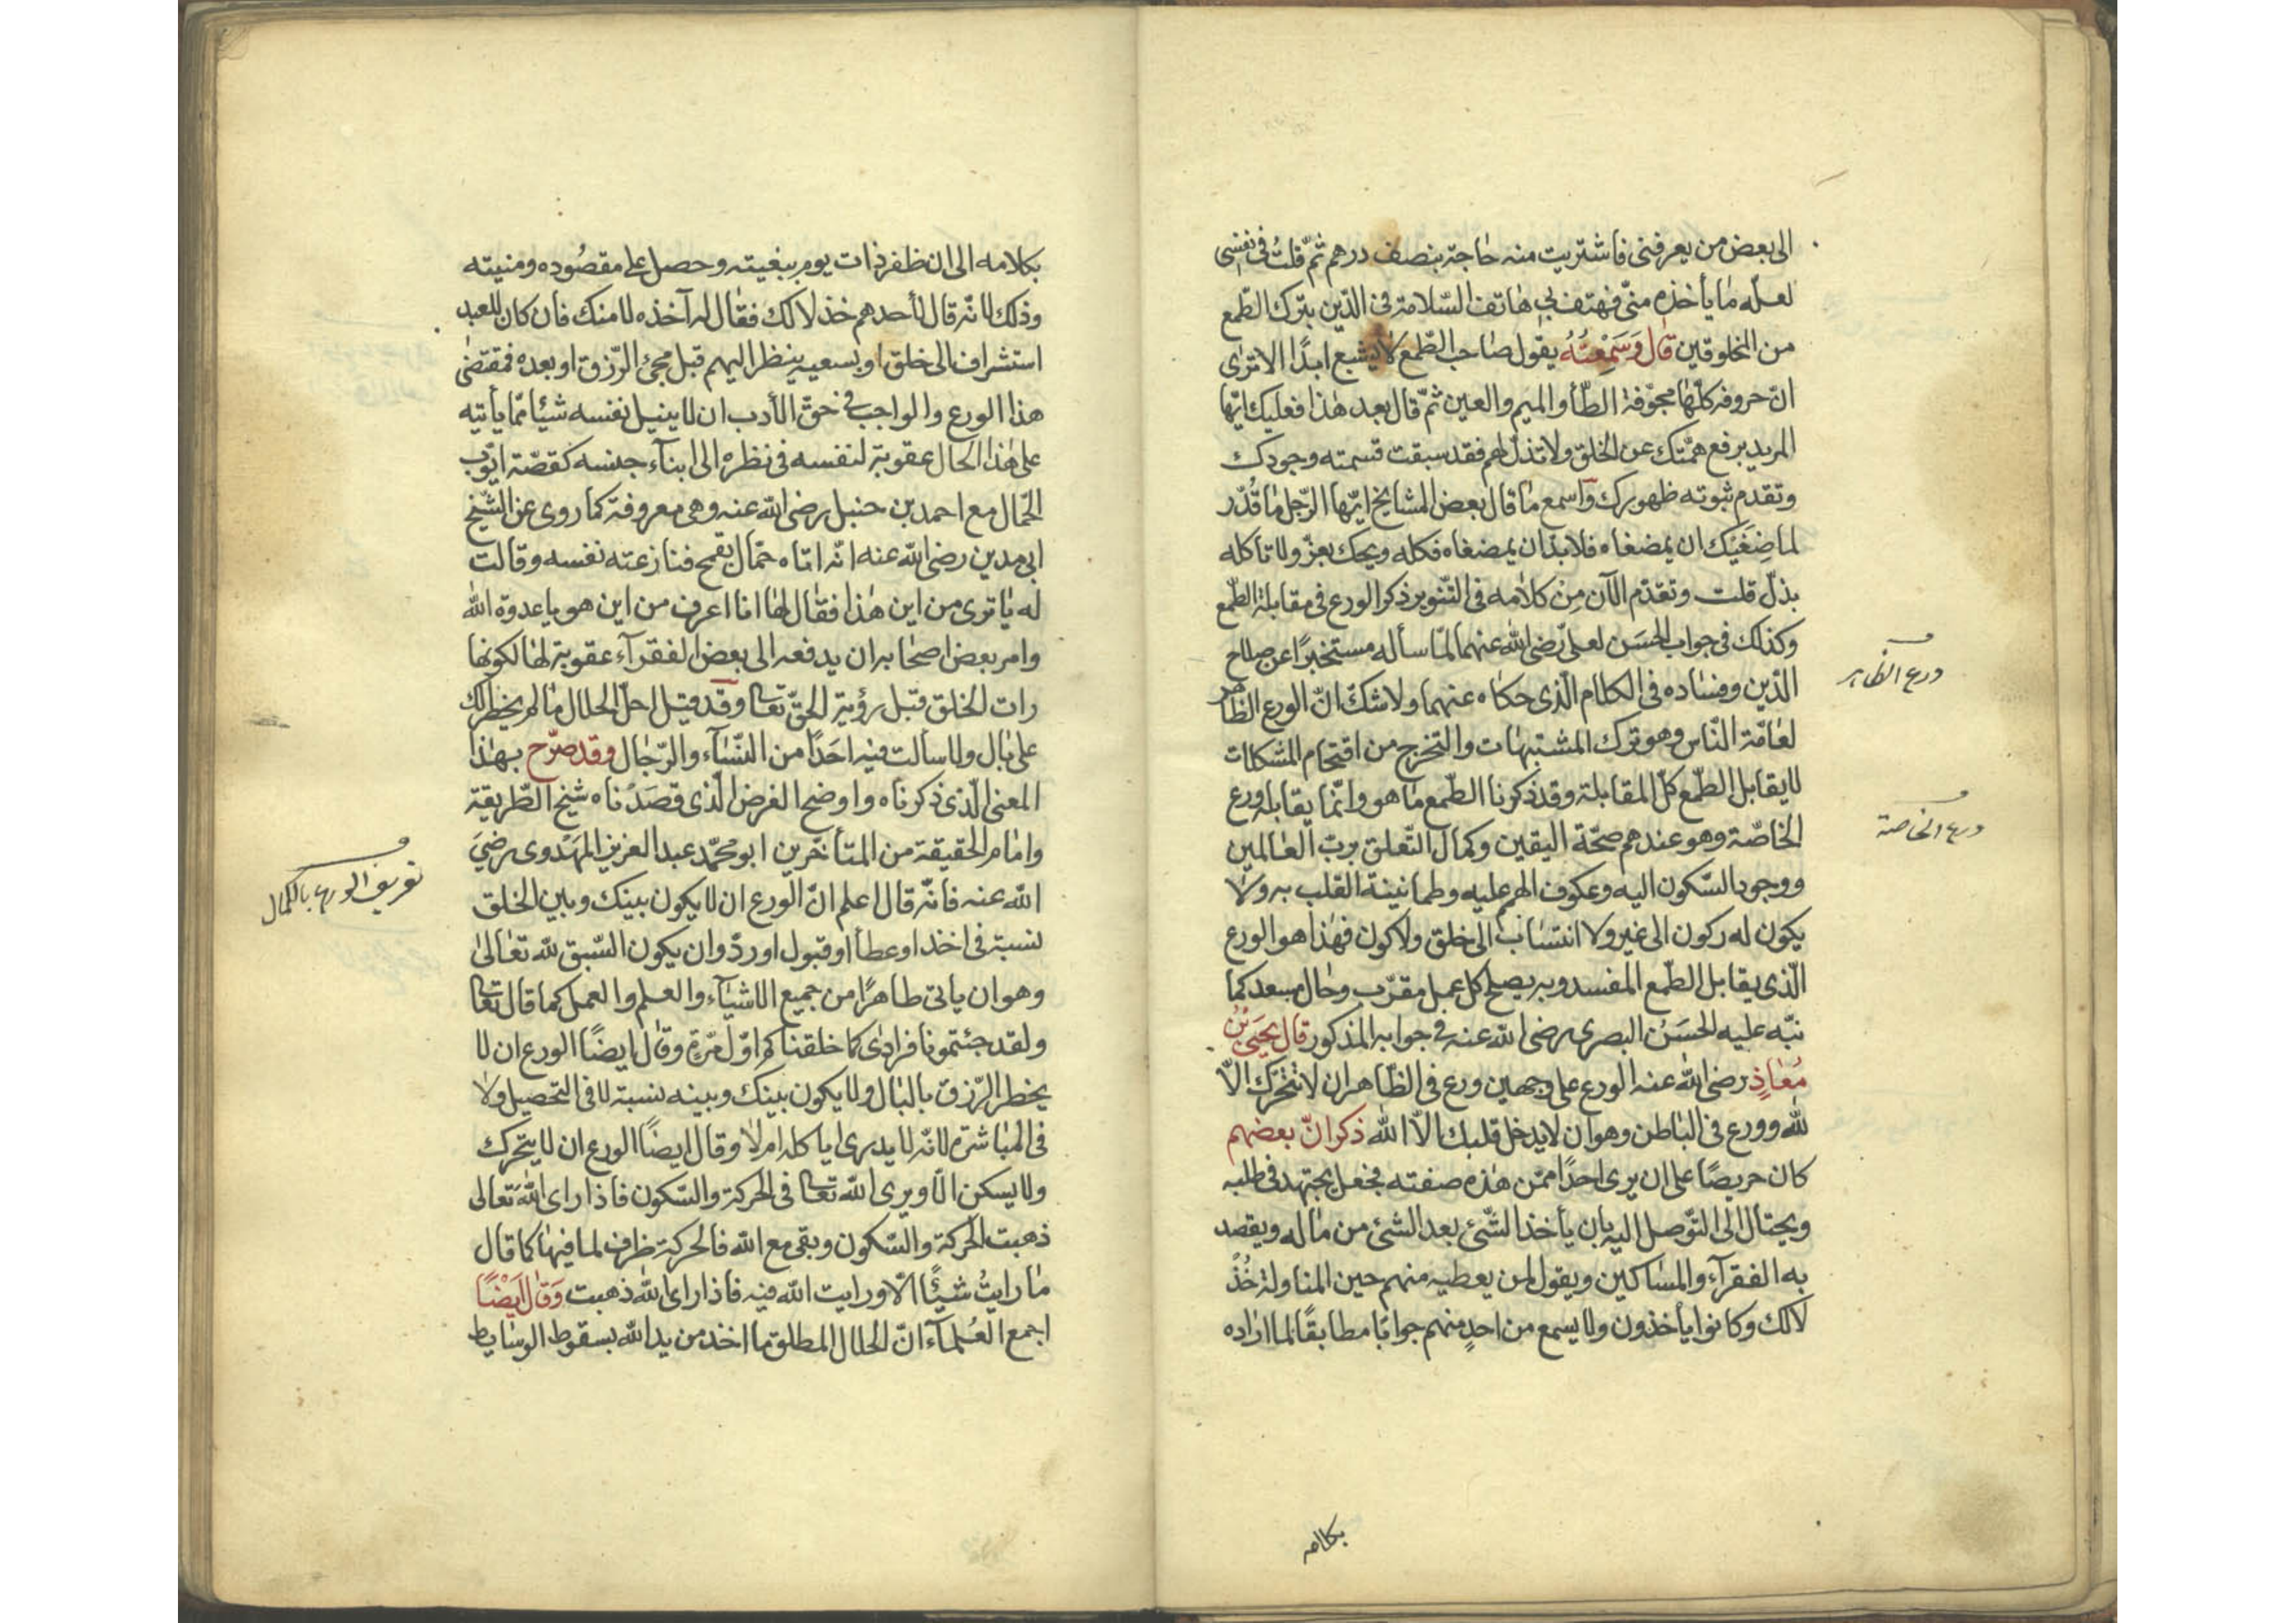 الى بعض من يعرفنى فاشتريت منه حاجة بنصف درهم ثمّ قلتُ فى نفسى
لعلّه ما يأخذه منّى فهتف بى هاتف السّلامة فى الدّين بترك الطّمع
من المخلوقين قال وَسَمِعْتُهُ يقول صاحب الطّمع لا يشبع ابدًا الا ترى
انّ حروفه كلّها مجوّفة الطّأ والميم والعين ثمّ قال بعد هذا فعليك ايّها
المريد برفع همّتك عن الخلق ولا تذلّ لهم فقد سبقت قسمته وجودك
وتقدم ثبوته ظهورك واسمع ما قال بعض المشايخ ايّها الرّجل ما قُدّر
لماضِغَيْك ان يمضغاه فلا بدّ ان يمضغاه فكله ويحك بعزّ ولا تأكله
بذلّ قلت وتقدّم الآن مِن كلامه فى التّنوير ذكر الورع فى مقابلة الطّمع
وكذلك فى جواب الحسَن لعلىّ رضى الله عنهما لمّا سأله مستخبرًا عن صلاح
الدّين وفساده فى الكلام الّذى حكاه عنهما ولا شكّ انّ الورع الظّاهر
لعامّة النّاس وهو ترك المشتبهات والتخرج من اقتحام المشكلات
لا يقابل الطّمع كلّ المقابلة وقد ذكرنا الطّمع ما هو وانّما يقابله ورع
الخاصّة وهو عندهم صحّة اليقين وكمال التّعلق بربّ العالمين
ووجود السّكون اليه وعكوف الهم عليه وطمانينة القلب به ولا
يكون له ركون الى غير ولا انتساب الى خلق ولا كون فهذا هو الورع
الّذى يقابل الطّمع المفسد وبه يصلح كل عمل مقرّب وحال مسعد كما
نبّه عليه الحسَنُ البصرى رضى الله عنه فى جوابه المذكور قال يحيى بْنُ
مُعَاذٍ رضى الله عنه الورع على وجهين ورع فى الظّاهر ان لا تتحرّك الاّ
لله وورع فى الباطن وهو ان لا يدخل قلبك الاّ الله ذكر انّ بعضهم
كان حريصًا على ان يرى احدًا ممّن هذه صفته فجعل يجتهد فى طلبه
ويحتال الى التّوصل اليه بان يأخذ الشّئ بعد الشئ من ماله ويقصد
به الفقرآء والمساكين ويقول لمن يعطيه منهم حين المناولة خُذْ
لا لك وكانوا يأخذون ولا يسمع من احدٍ منهم جوابًا مطابقًا لما اراده
ورع الظاهر
ورع الخاصة
بكلامه
بكلامه الى ان ظفر ذات يوم ببغيته وحصل على مقصُوده ومنيته
وذلك لانّه قال لأحدهم خذ لا لك فقال له آخذه لا منك فأن كان للعبد
استشراف الى خلق او بسعيه ينظر اليهم قبل مجئ الرّزق او بعده فمقتضى
هذا الورع والواجب فى حقّ الأدب ان لا ينيل نفسه شيئا ممّا يأتيه
على هذا الحال عقوبة لنفسه فى نظره الى ابنآء جنسه كقصّة ايّوب
الحّمال مع احمد بن حنبل رضى الله عنه وهى معروفة كما روى عن الشّيخ
ابى مدين رضى الله عنه انّه اتاه حمّال بقمح فنازعته نفسه وقالت
له يا ترى من اين هذا فقال لها انا اعرف من اين هو يا عدوّة الله
وامر بعض اصحابه ان يدفعه الى بعض الفقرآء عقوبة لها لكونها
رات الخلق قبل رؤية الحقّ تعالى وقد قيل احلّ الحلال ما لم يخطر لك
على بال ولا سألت فيه احَدًا من النّسآء والرّجال وقد صرّح بهذا
المعنى الّذى ذكرناه واوضح الغرض الّذى قصَدْناه شيخ الطّريقة
وامام الحقيقة من المتأخّرين ابو محمّد عبد العزيز المهْدوى رضىَ
الله عنه فانّه قال اعلم انّ الورع ان لا يكون بينك وبين الخلق
نسبة فى اخذ او عطأ او قبول او ردّ وان يكون السّبق لله تعالى
وهو ان ياتى طاهرًا من جميع الاشيآء والعلم والعمل كما قال تعالى
ولقد جئتمونا فرادى كما خلقناكم اوّل مرّةٍ وقال ايضًا الورع ان لا
يخطر الرّزق بالبال ولا يكون بينك وبينه نسبة لا فى التحصيل ولا
فى المباشرة لانّه لا يدرى اياكله ام لا وقال ايضًا الورع ان لا يتحرك
ولا يسكن الّا ويرى الله تعالى فى الحركة والسّكون فاذا راى الله تعالى
ذهبت الحركة والسّكون وبقى مع الله فالحركة ظرف لما فيها كما قال
ما رايتُ شيئًا الّا ورايت الله فيه فاذا راى الله ذهبت وَقَالَ اَيْضًا
اجمع العُلمآء انّ الحلال المطلق ما اخذ من يد الله بسقوط الوسايط
تعريف الورع بالكمال